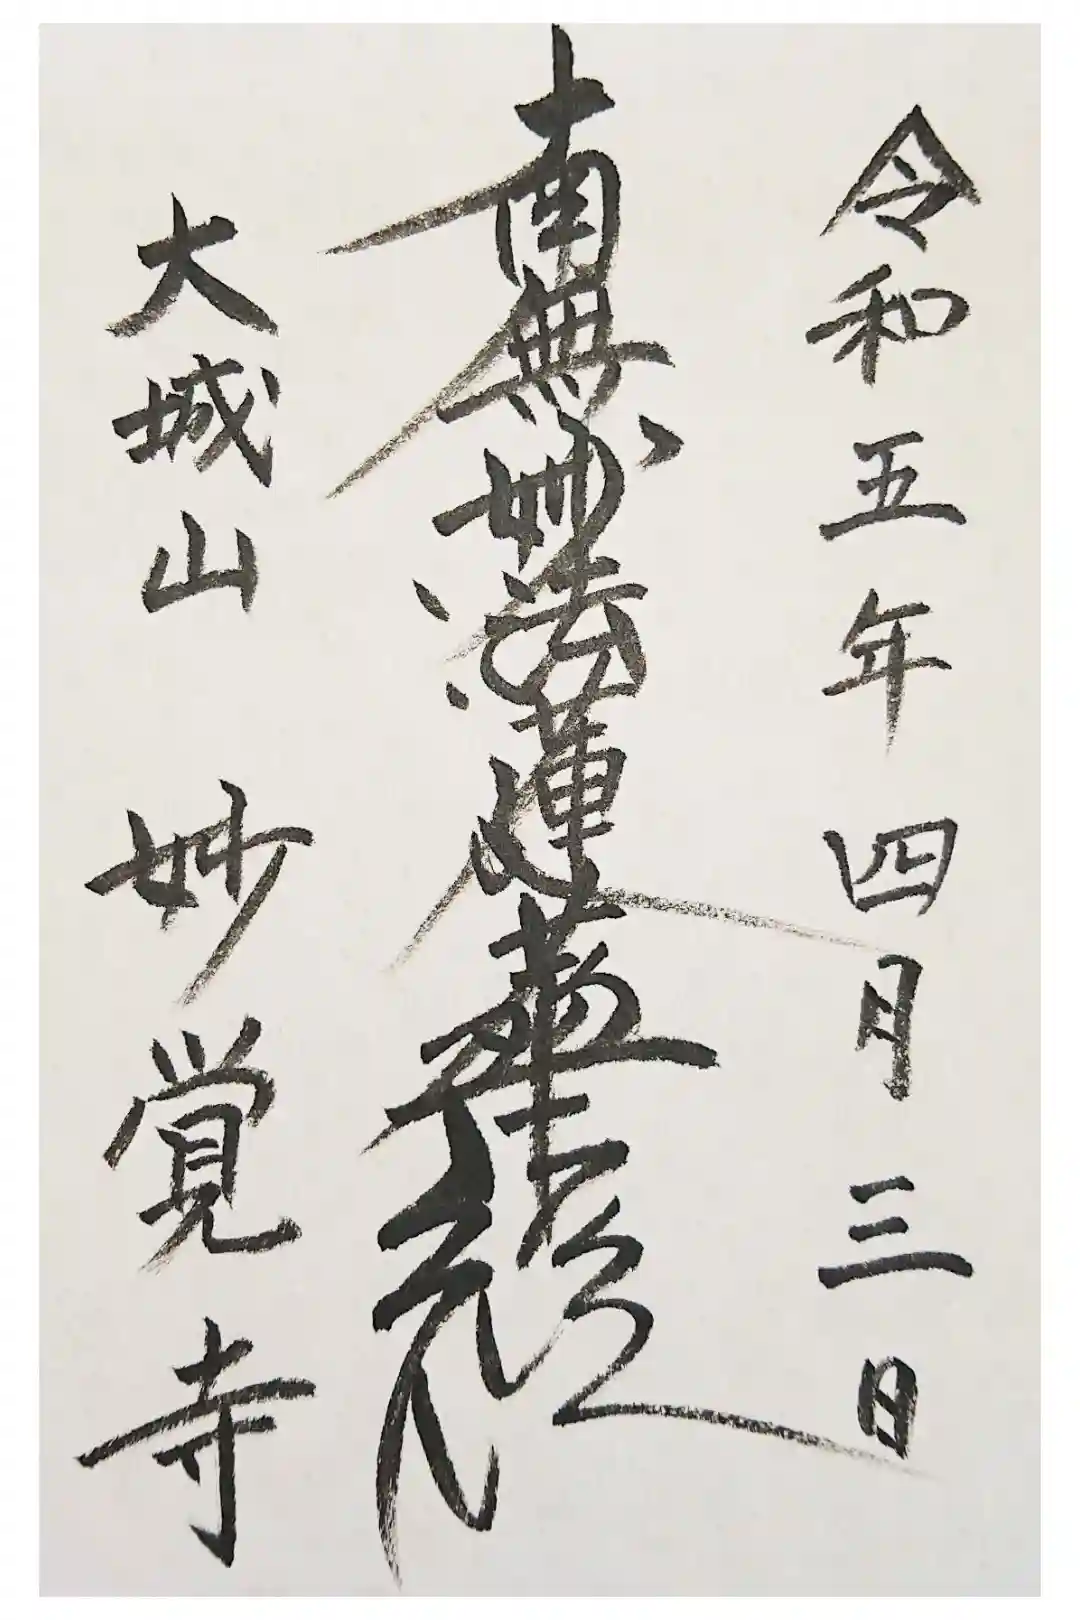 令和五年四月三日
南無妙法蓮華経
大城山 妙覚寺